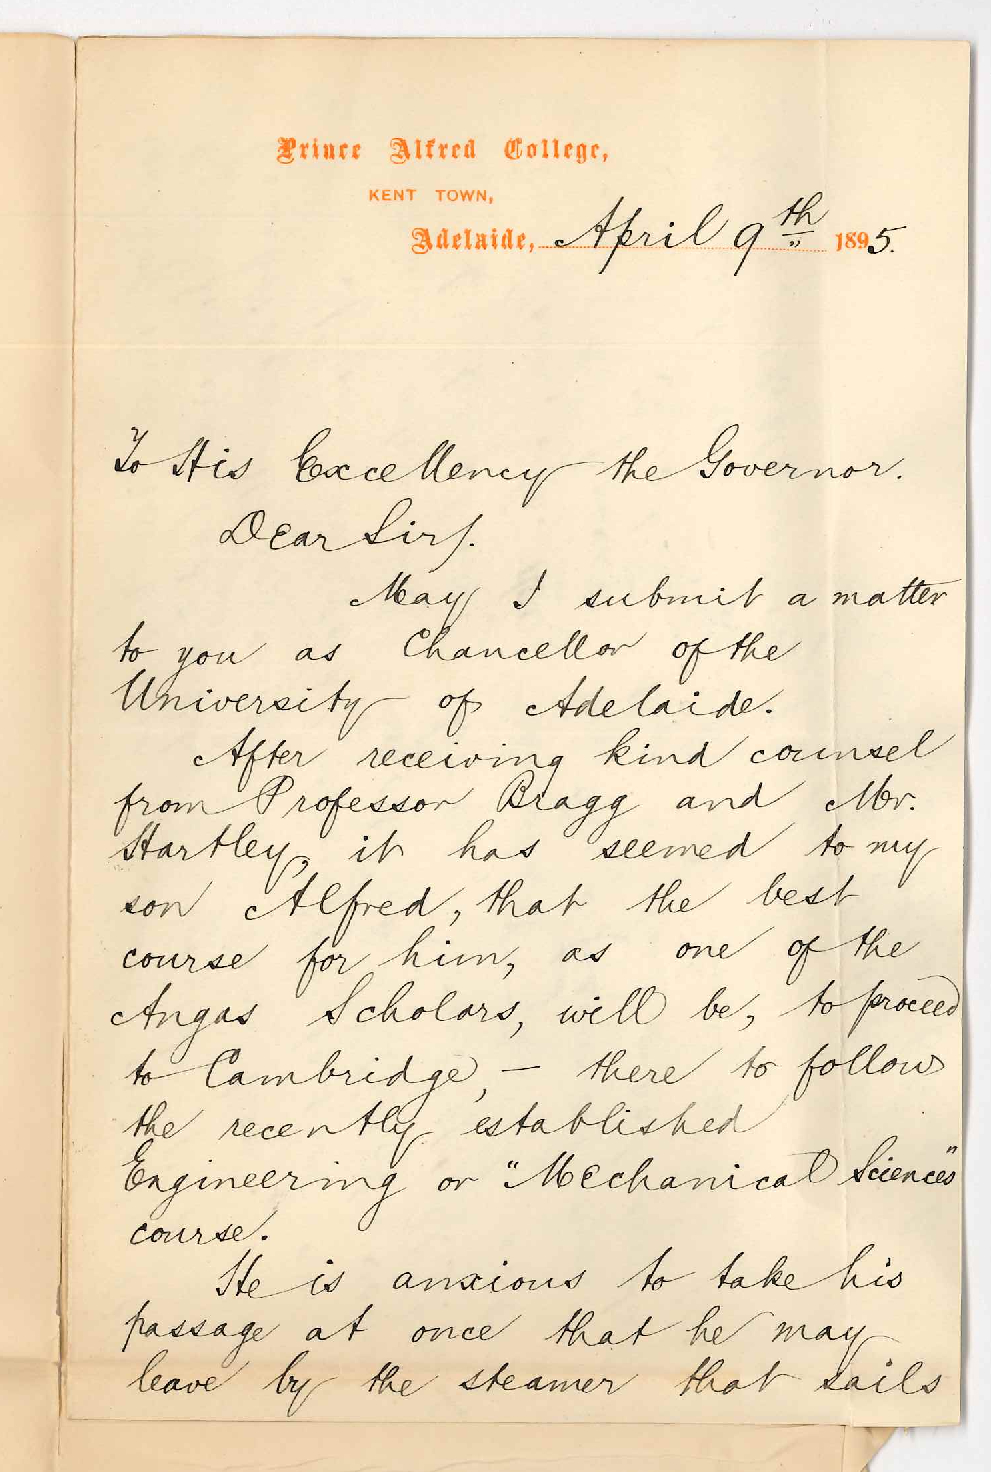 Prince Alfred College,
KENT TOWN,
Adelaide, April 9th 1895.
To His Excellency the Governor.
Dear Sir/.
May I submit a matter
to you as Chancellor of the
University of Adelaide.
After receiving kind counsel
from Professor Bragg and Mr.
Hartley, it has seemed to my
son Alfred, that the best
course for him, as one of the
Angas Scholars, will be, to proceed
to Cambridge, — there to follow
the recently established
Engineering or "Mechanical Sciences"
course.
He is anxious to take his
passage at once that he may
leave by the steamer that sails